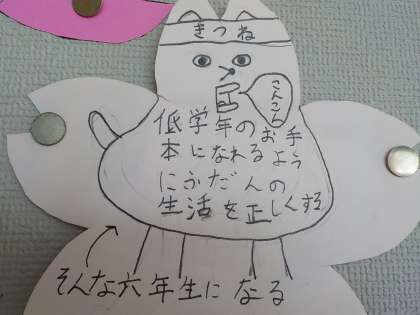 きつね
こんこん
低学年のお手
本になれるよう
にふだんの
生活を正しくする
そんな六年生になる